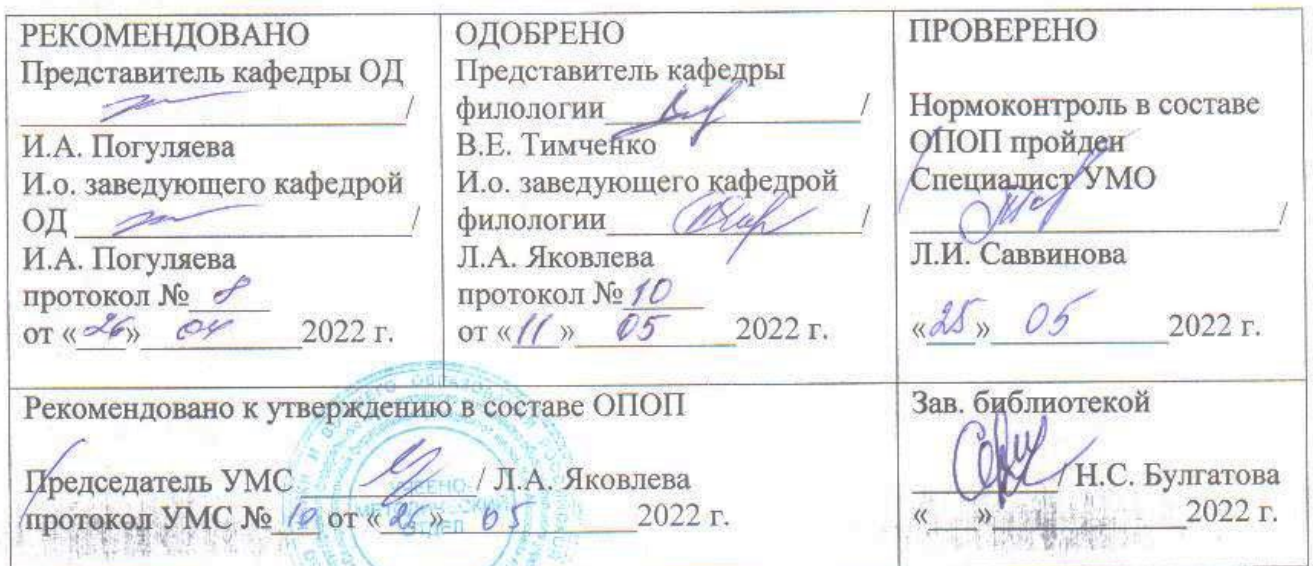 РЕКОМЕНДОВАНО
Представитель кафедры ОД
/
И.А. Погуляева
И.о. заведующего кафедрой
ОД /
И.А. Погуляева
протокол № 8
от «26» 04 2022 г.
ОДОБРЕНО
Представитель кафедры
филологии /
В.Е. Тимченко
И.о. заведующего кафедрой
филологии /
Л.А. Яковлева
протокол № 10
от «11» 05 2022 г.
ПРОВЕРЕНО
Нормоконтроль в составе
ОПОП пройден
Специалист УМО
/
Л.И. Саввинова
«25» 05 2022 г.
Рекомендовано к утверждению в составе ОПОП
Председатель УМС / Л.А. Яковлева
протокол УМС № 10 от «26» 05 2022 г.
Зав. библиотекой
/ Н.С. Булгатова
« » 2022 г.